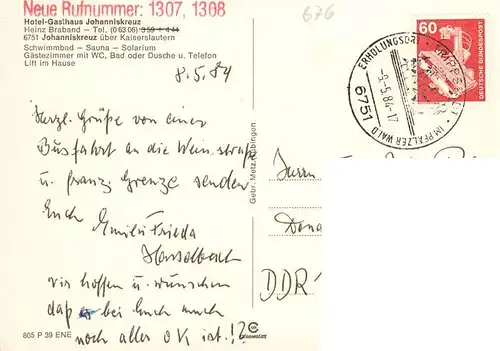 Neue Rufnummer: 1307, 1308
676
Hotel-Gasthaus Johanniskreuz
Heinz Braband – Tel. (0 63 06) 359 + 444
6751 Johanniskreuz über Kaiserslautern
Schwimmbad – Sauna – Solarium
Gästezimmer mit WC, Bad oder Dusche u. Telefon
Lift im Hause
8.5.84
Herzl. Grüße von einer
Busfahrt an die Weinstraße
u. franz. Grenze senden
Euch Emil u. Frieda
Hasselbach
wir hoffen u. wünschen
daß bei Euch auch
noch alles OK ist.!?
805 P 39 ENE
Gebr. Metz, Tübingen
60
DEUTSCHE BUNDESPOST
ERHOLUNGSORT TRIPPSTADT
IM PFÄLZER WALD
6751
-9.-5.84-17
Herrn
DDR